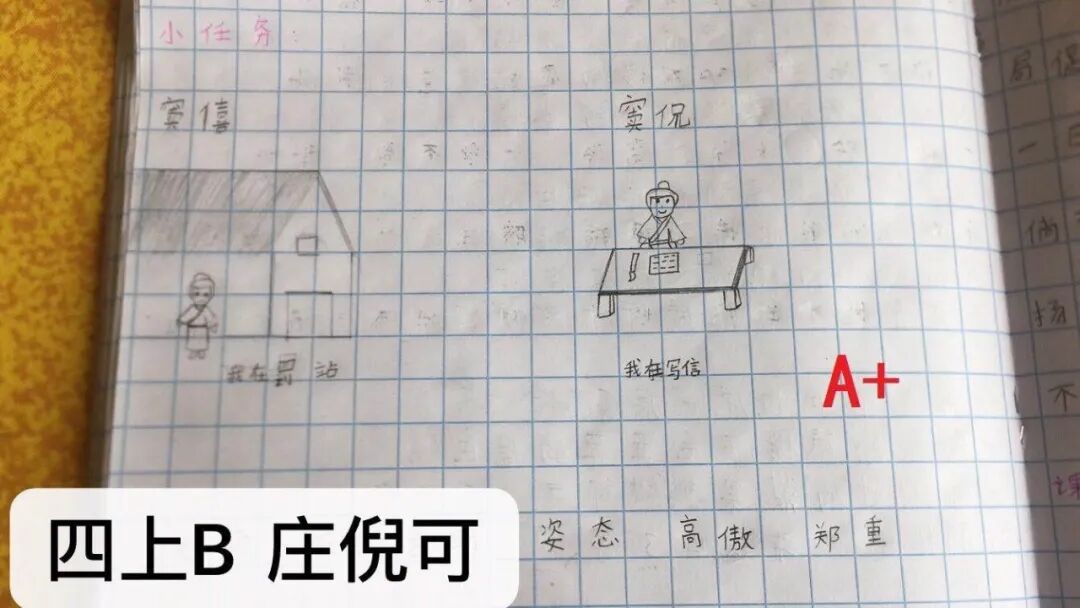 小任务：
窦僖
窦侃
我在罚站
我在写信
A+
姿态 高傲 郑重
四上B 庄倪可
局
一日
倘
扬
不
课